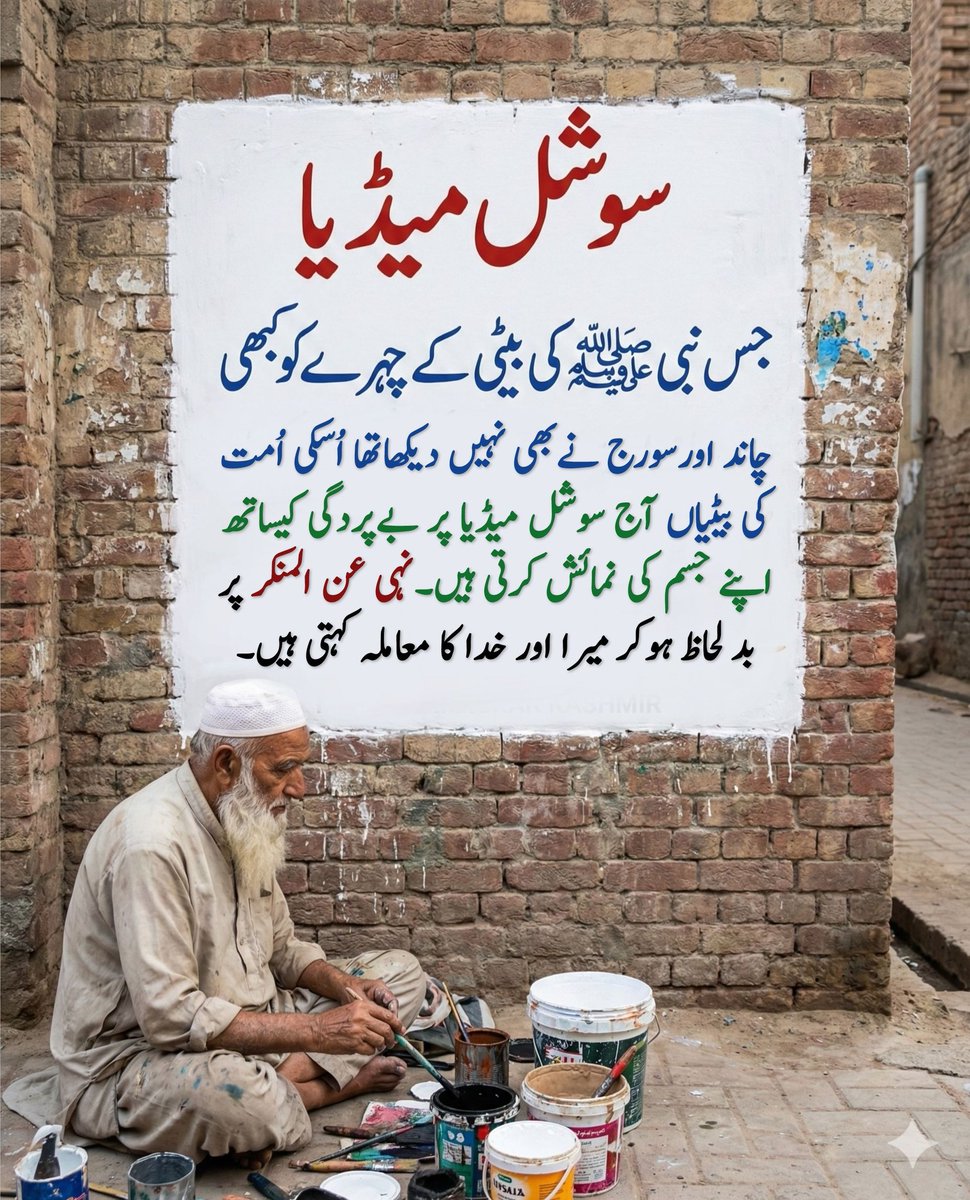 سوشل میڈیا
جس نبی ﷺ کی بیٹی کے چہرے کو کبھی
چاند اور سورج نے بھی نہیں دیکھا تھا اُسکی اُمت
کی بیٹیاں آج سوشل میڈیا پر بے پردگی کیساتھ
اپنے جسم کی نمائش کرتی ہیں۔ نہی عن المنکر پر
بد لحاظ ہو کر میرا اور خدا کا معاملہ کہتی ہیں۔